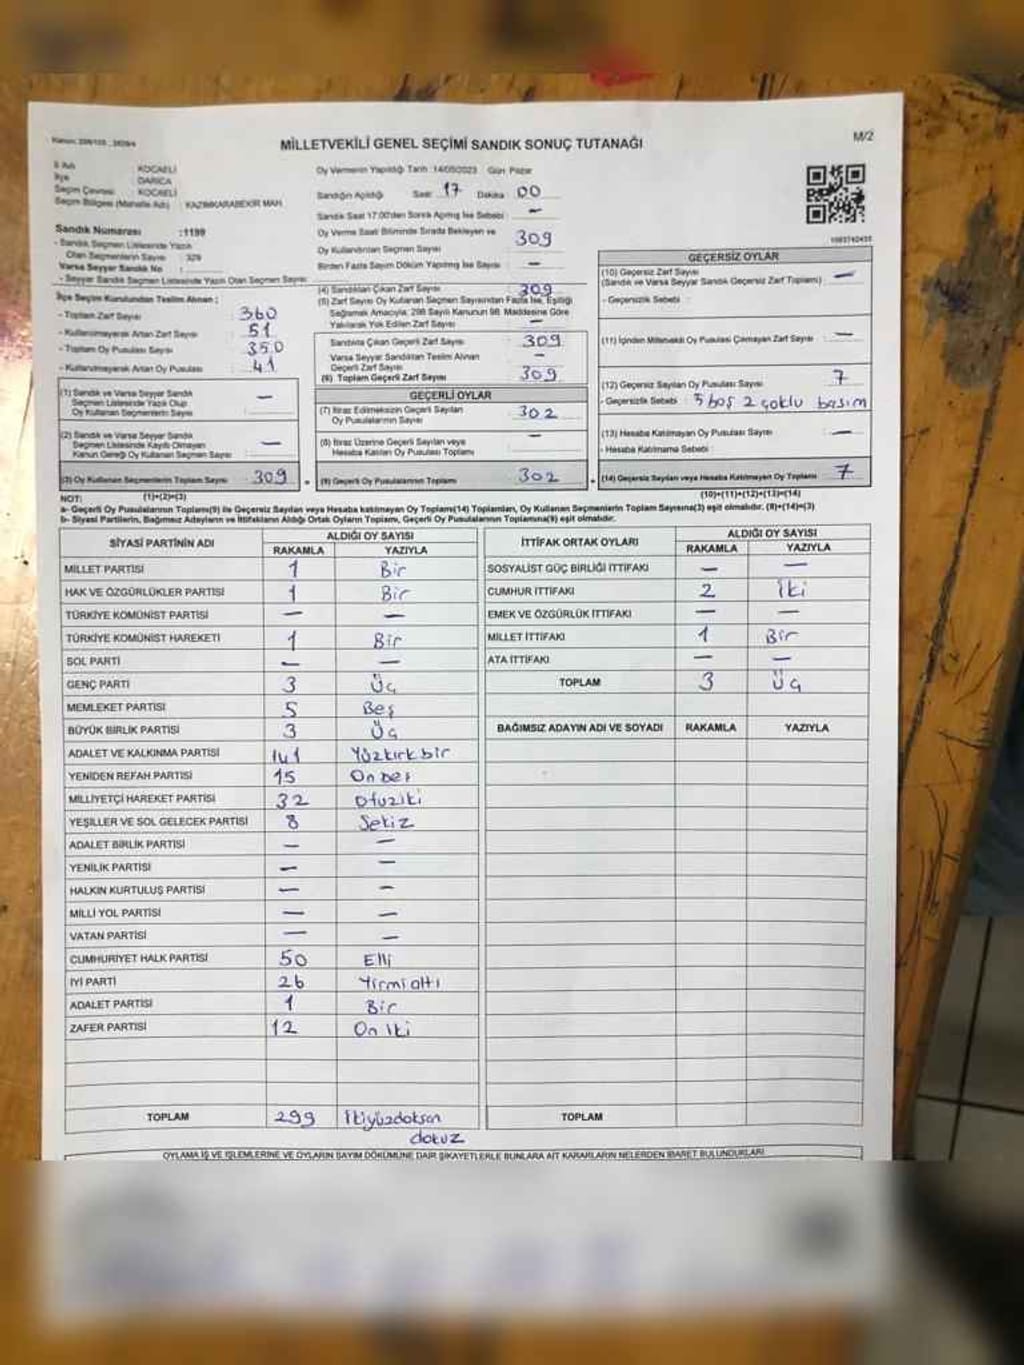 MİLLETVEKİLİ GENEL SEÇİMİ SANDIK SONUÇ TUTANAĞI
M/2
İl Adı : KOCAELİ
İlçe : DARICA
Seçim Çevresi : KOCAELİ
Seçim Bölgesi (Mahalle Adı) : KAZIMKARABEKİR MAH.
Sandık Numarası :1199
- Sandık Seçmen Listesinde Yazılı
Olan Seçmenlerin Sayısı : 329
Varsa Seyyar Sandık No :
- Seyyar Sandık Seçmen Listesinde Yazılı Olan Seçmen Sayısı
Oy Vermenin Yapıldığı Tarih :14/05/2023 Gün Pazar
Sandığın Açıldığı Saat 17 Dakika 00
Sandık Saat 17.00'den Sonra Açılmış İse Sebebi : —
Oy Verme Saati Bitiminde Sırada Bekleyen ve
Oy Kullandırılan Seçmen Sayısı : 309
Birden Fazla Sayım Döküm Yapılmış İse Sayısı : —
İlçe Seçim Kurulundan Teslim Alınan ;
- Toplam Zarf Sayısı : 360
- Kullanılmayarak Artan Zarf Sayısı : 51
- Toplam Oy Pusulası Sayısı : 350
- Kullanılmayarak Artan Oy Pusulası : 41
(1) Sandık ve Varsa Seyyar Sandık
Seçmen Listesinde Yazılı Olup
Oy Kullanan Seçmenlerin Sayısı : —
(2) Sandık ve Varsa Seyyar Sandık
Seçmen Listesinde Kayıtlı Olmayan
Kanun Gereği Oy Kullanan Seçmen Sayısı : —
(3) Oy Kullanan Seçmenlerin Toplam Sayısı : 309
(1)+(2)=(3)
(4) Sandıktan Çıkan Zarf Sayısı : 309
(5) Zarf Sayısı Oy Kullanan Seçmen Sayısından Fazla İse, Eşitliği
Sağlamak Amacıyla; 298 Sayılı Kanunun 98. Maddesine Göre
Yakılarak Yok Edilen Zarf Sayısı : —
Sandıkta Çıkan Geçerli Zarf Sayısı : 309
Varsa Seyyar Sandıktan Teslim Alınan
Geçerli Zarf Sayısı : —
(6) Toplam Geçerli Zarf Sayısı : 309
GEÇERLİ OYLAR
(7) İtiraz Edilmeksizin Geçerli Sayılan
Oy Pusulalarının Sayısı : 302
(8) İtiraz Üzerine Geçerli Sayılan veya
Hesaba Katılan Oy Pusulası Toplamı : —
(9) Geçerli Oy Pusulalarının Toplamı : 302
GEÇERSİZ OYLAR
(10) Geçersiz Zarf Sayısı : —
(Sandık ve Varsa Seyyar Sandık Geçersiz Zarf Toplamı)
- Geçersizlik Sebebi :
(11) İçinden Milletvekili Oy Pusulası Çıkmayan Zarf Sayısı : —
(12) Geçersiz Sayılan Oy Pusulası Sayısı : 7
- Geçersizlik Sebebi : 5 boş 2 çoklu basım
(13) Hesaba Katılmayan Oy Pusulası Sayısı : —
- Hesaba Katılmama Sebebi :
(14) Geçersiz Sayılan veya Hesaba Katılmayan Oy Toplamı : 7
(10)+(11)+(12)+(13)=(14)
NOT:
a- Geçerli Oy Pusulalarının Toplamı(9) ile Geçersiz Sayılan veya Hesaba katılmayan Oy Toplamı(14) Toplamları, Oy Kullanan Seçmenlerin Toplam Sayısına(3) eşit olmalıdır. (9)+(14)=(3)
b- Siyasi Partilerin, Bağımsız Adayların ve İttifakların Aldığı Ortak Oyların Toplamı, Geçerli Oy Pusulalarının Toplamına(9) eşit olmalıdır.
SİYASİ PARTİNİN ADI ALDIĞI OY SAYISI
RAKAMLA YAZIYLA
MİLLET PARTİSİ 1 Bir
HAK VE ÖZGÜRLÜKLER PARTİSİ 1 Bir
TÜRKİYE KOMÜNİST PARTİSİ — —
TÜRKİYE KOMÜNİST HAREKETİ 1 Bir
SOL PARTİ — —
GENÇ PARTİ 3 Üç
MEMLEKET PARTİSİ 5 Beş
BÜYÜK BİRLİK PARTİSİ 3 Üç
ADALET VE KALKINMA PARTİSİ 141 Yüzkırkbir
YENİDEN REFAH PARTİSİ 15 On beş
MİLLİYETÇİ HAREKET PARTİSİ 32 Otuziki
YEŞİLLER VE SOL GELECEK PARTİSİ 8 Sekiz
ADALET BİRLİK PARTİSİ — —
YENİLİK PARTİSİ — —
HALKIN KURTULUŞ PARTİSİ — —
MİLLİ YOL PARTİSİ — —
VATAN PARTİSİ — —
CUMHURİYET HALK PARTİSİ 50 Elli
İYİ PARTİ 26 Yirmialtı
ADALET PARTİSİ 1 Bir
ZAFER PARTİSİ 12 On iki
TOPLAM 299 İkiyüzdoksan
dokuz
İTTİFAK ORTAK OYLARI ALDIĞI OY SAYISI
RAKAMLA YAZIYLA
SOSYALİST GÜÇ BİRLİĞİ İTTİFAKI — —
CUMHUR İTTİFAKI 2 İki
EMEK VE ÖZGÜRLÜK İTTİFAKI — —
MİLLET İTTİFAKI 1 Bir
ATA İTTİFAKI — —
TOPLAM 3 Üç
BAĞIMSIZ ADAYIN ADI VE SOYADI RAKAMLA YAZIYLA
TOPLAM
OYLAMA İŞ VE İŞLEMLERİNE VE OYLARIN SAYIM DÖKÜMÜNE DAİR ŞİKAYETLERLE BUNLARA AİT KARARLARIN NELERDEN İBARET BULUNDUKLARI